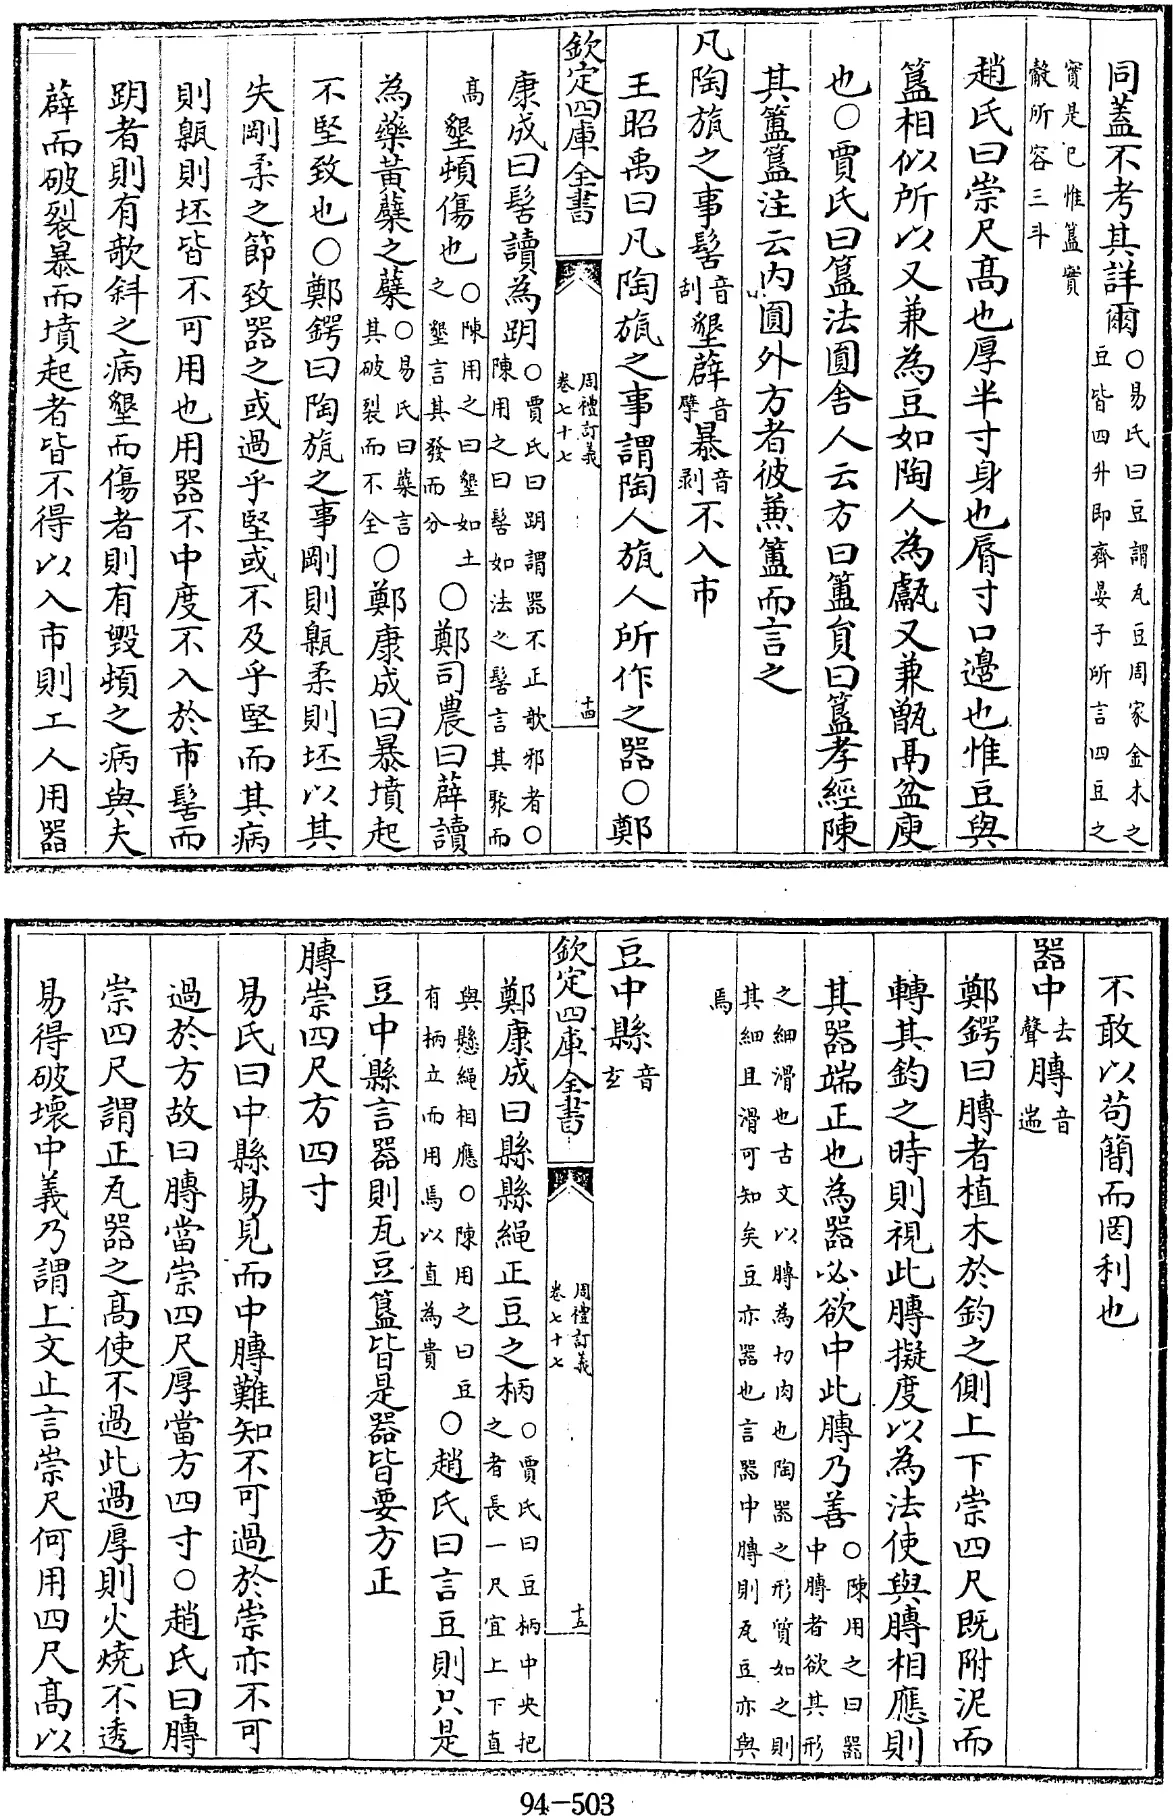 同蓋不考其詳爾○易氏曰豆謂瓦豆周家金木之豆皆四升即齊晏子所言四豆之
實是已惟簋實觳所容三斗
趙氏曰崇尺高也厚半寸身也脣寸口邊也惟豆與
簋相似所以又兼為豆如陶人為甗又兼甑鬲盆庾
也○賈氏曰簋法圓舍人云方曰簠員曰簋孝經陳
其簠簋注云内圓外方者彼兼簠而言之
凡陶瓬之事髻音刮墾薜音擘暴音剥不入市
王昭禹曰凡陶瓬之事謂陶人瓬人所作之器○鄭
欽定四庫全書 周禮訂義卷七十七 十四
康成曰髻讀為跀○賈氏曰跀謂器不正欹邪者○陳用之曰髻如法之髻言其聚而
高墾頓傷也○陳用之曰墾如土之墾言其發而分○鄭司農曰薜讀
為藥黃蘗之蘗○易氏曰藥言其破裂而不全○鄭康成曰暴墳起
不堅致也○鄭鍔曰陶瓬之事剛則甈柔則坯以其
失剛柔之節致器之或過乎堅或不及乎堅而其病
則甈則坯皆不可用也用器不中度不入於市髻而
跀者則有欹斜之病墾而傷者則有毀頓之病與夫
薜而破裂暴而墳起者皆不得以入市則工人用器
不敢以苟簡而罔利也
器中去聲膞音遄
鄭鍔曰膞者植木於鈞之側上下崇四尺既附泥而
轉其鈞之時則視此膞擬度以為法使與膞相應則
其器端正也為器必欲中此膞乃善○陳用之曰器中膞者欲其形
之細滑也古文以膞為切肉也陶器之形質如之則其細且滑可知矣豆亦器也言器中膞則瓦豆亦與
焉
豆中縣音玄
欽定四庫全書 周禮訂義卷七十七 十五
鄭康成曰縣縣繩正豆之柄○賈氏曰豆柄中央把之者長一尺宜上下直
與懸繩相應○陳用之曰豆有柄立而用焉以直為貴○趙氏曰言豆則只是
豆中縣言器則瓦豆簋皆是器皆要方正
膞崇四尺方四寸
易氏曰中縣易見而中膞難知不可過於崇亦不可
過於方故曰膞當崇四尺厚當方四寸○趙氏曰膞
崇四尺謂正瓦器之高使不過此過厚則火燒不透
易得破壞中義乃謂上文止言崇尺何用四尺高以
94-503